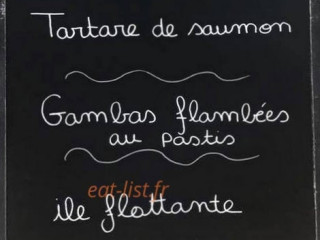 Tartare de saumon
Gambas flambées
au pastis
eat-list.fr
ile flottante